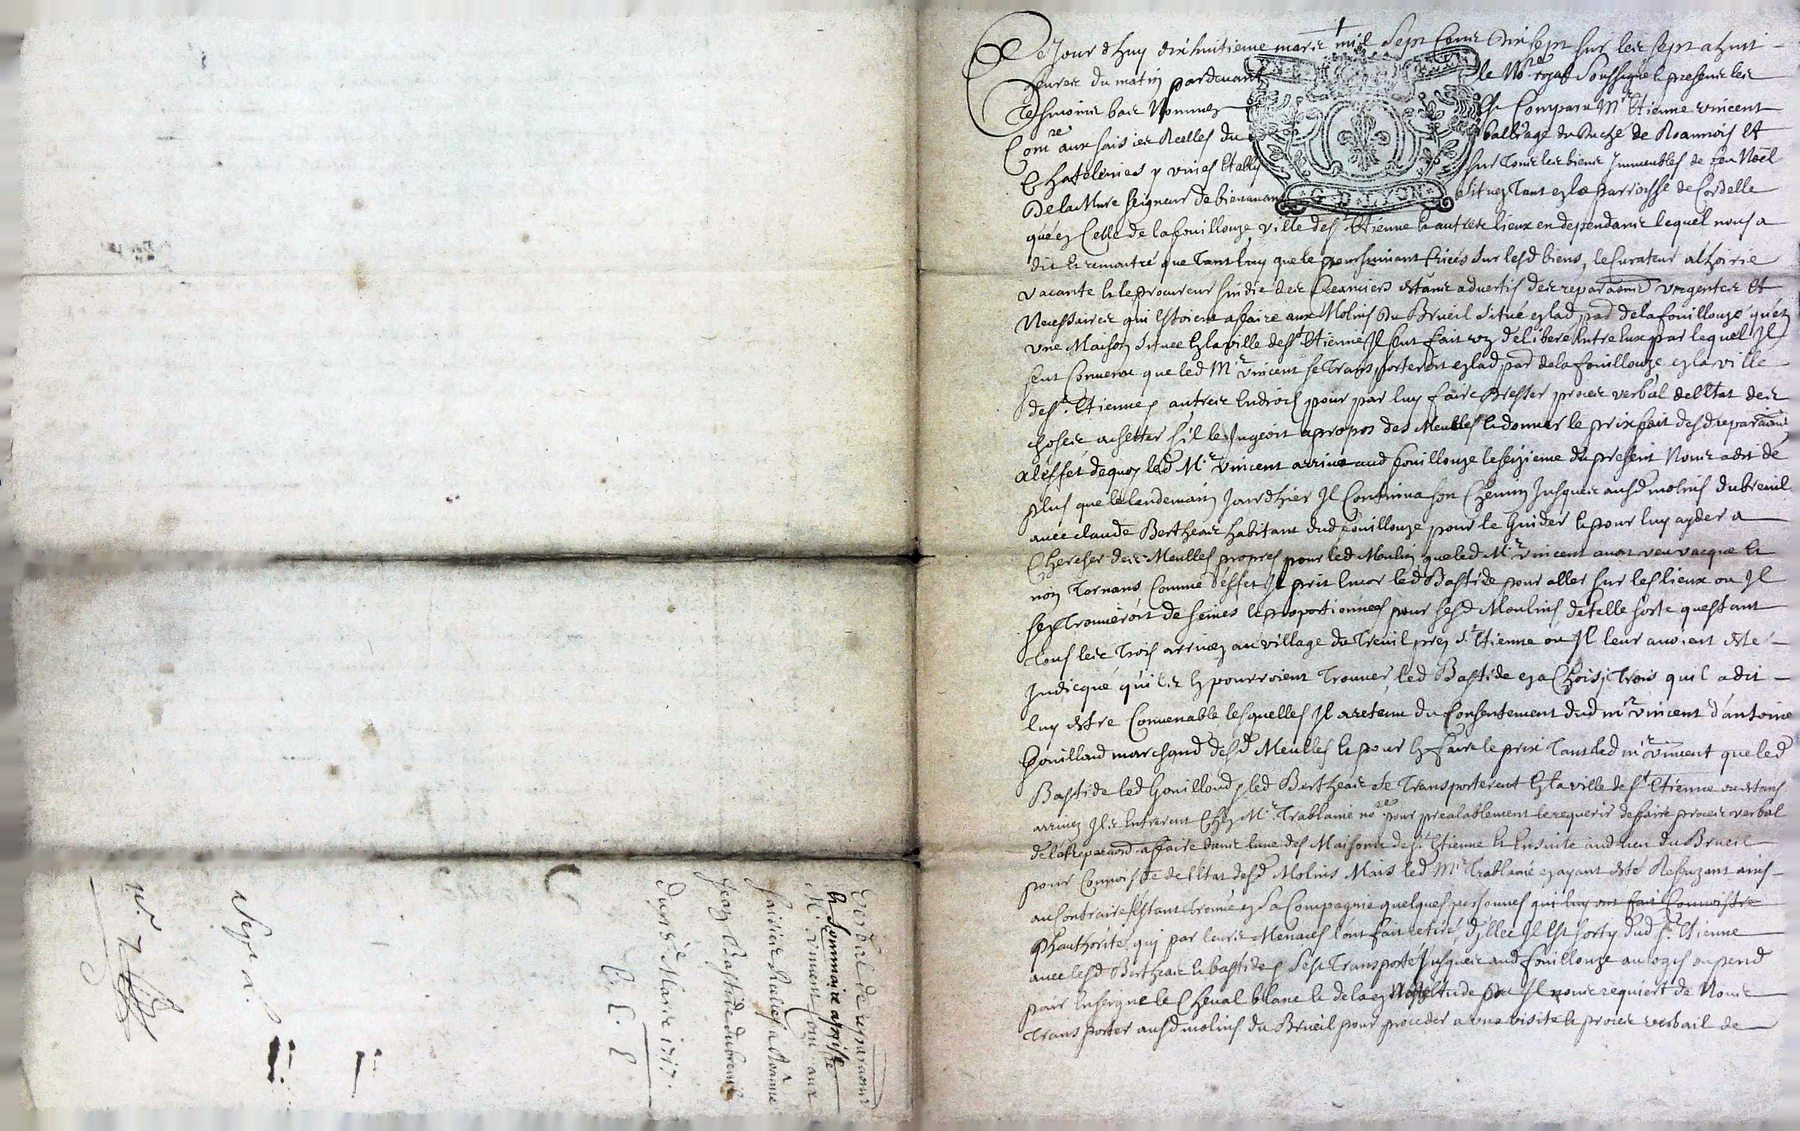 Ce Jour d'huy dix huitieme mars mil sept Cent dix sept sur les sept a huit
heures du matin pardevant le No.re royal soussigné & presents les
tesmoins bas nommez Est Comparu Mr Etienne vincent
Com.re aux saisies Reelles du balliage du Duché de Roannois Et
Chatelenies y unies Etably sur tous les biens Immeubles de feu Noël
Delamure seigneur de bienavant situez tant en la parroisse de Cordelle
qu'en Celle de lafouillouze ville de St Etienne & autres lieux en dependants lequel nous a
dit & remontré que tant luy que le poursuivant Criées sur lesd biens, le Curateur a l'hoirie
vacante & le procureur sindic des Creanciers Estans advertis des reparaons urgentes Et
Necessaires qui Estoient a faire aux Molins du Brueil situé en lad par. de lafouillouze qu'en
une Maison située En la ville de St Etienne Il fut fait un deliberé Entre Eux par lequel Il
fut Convenu que led Mr vincent se transporteroit en lad par. de lafouillouze en la ville
de St Etienne & autres Endrois pour par luy faire dresser proces verbal de l'Etat des
choses achetter s'il le Jugeoit apropos des Meulles & donner le prixfait desd reparaons
a l'effet dequoy led Mr vincent arrivé aud fouillouze le seizieme du present Nous a dit de
plus que le landemain Jour d'hier Il Continua son Chemin Jusques ausd molins du breuil
avec claude Bertheas habitant dud fouillouze pour le Guider & pour luy ayder a
Chercher des Meulles propres pour led Moulin que led Mr vincent avoit veu vacque &
non tornans, Comme d'effet Il prit led Bastide pour aller sur les lieux ou Il
s'en trouveroit de & proportionnées pour lesd Moulins de telle sorte questant
tous les trois arrivez au village du treuil prez St Etienne ou Il leur avoient Esté
Indicqué qu'ils En pourroient trouver, led Bastide en a Choisy trois qu'il a dit
luy Estre Convenable lesquelles Il a retenu du Consentement dud mr vincent d'antoine
Gouilloud marchand desd Meulles & pour En faire le prix tant led mr vincent que led
Bastide led Gouilloud & led Bertheas se transporterent En la ville de St Etienne ou Estans
arrivez Ils Entrerent Chez Mr trablaine no.re pour prealablement le requerir de faire proces verbal
de la Reparaon a faire dans lune des Maisons de St Etienne & Ensuite aud lieu du Brueil
pour Connoistre de l'Etat desd Molins Mais led Mr trablaine en ayant Esté Refuzant ains
au Contraire s'Estant trouvé en sa Compagnie quelques personnes qui luy ont fait Connoistre
d'authorité, qui par leurs Menaces l'ont fait retiré d'Illec Il Est sorty dud St Etienne
avec lesd Bertheas & bastide & s'Est transporté Jusques aud fouillouze au logis ou pend
pour Enseigne le Cheval blanc & dela en Nostre Estude ou Il nous requiert de Nous
transporter ausd molins du Brueil pour proceder a une visite & proces verbail de
Verbal de reparaons
& sommaire apprisse
Mr vincent Com.re aux
saisies Reelles a Roanne
Jean Bastide du breuil
Du 18e Mars 1717.